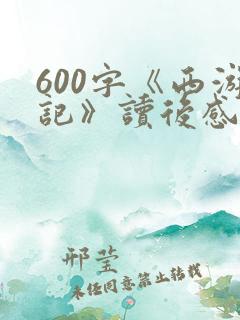 600字《西游
记》读后感
邢莹
未经同意禁止转载